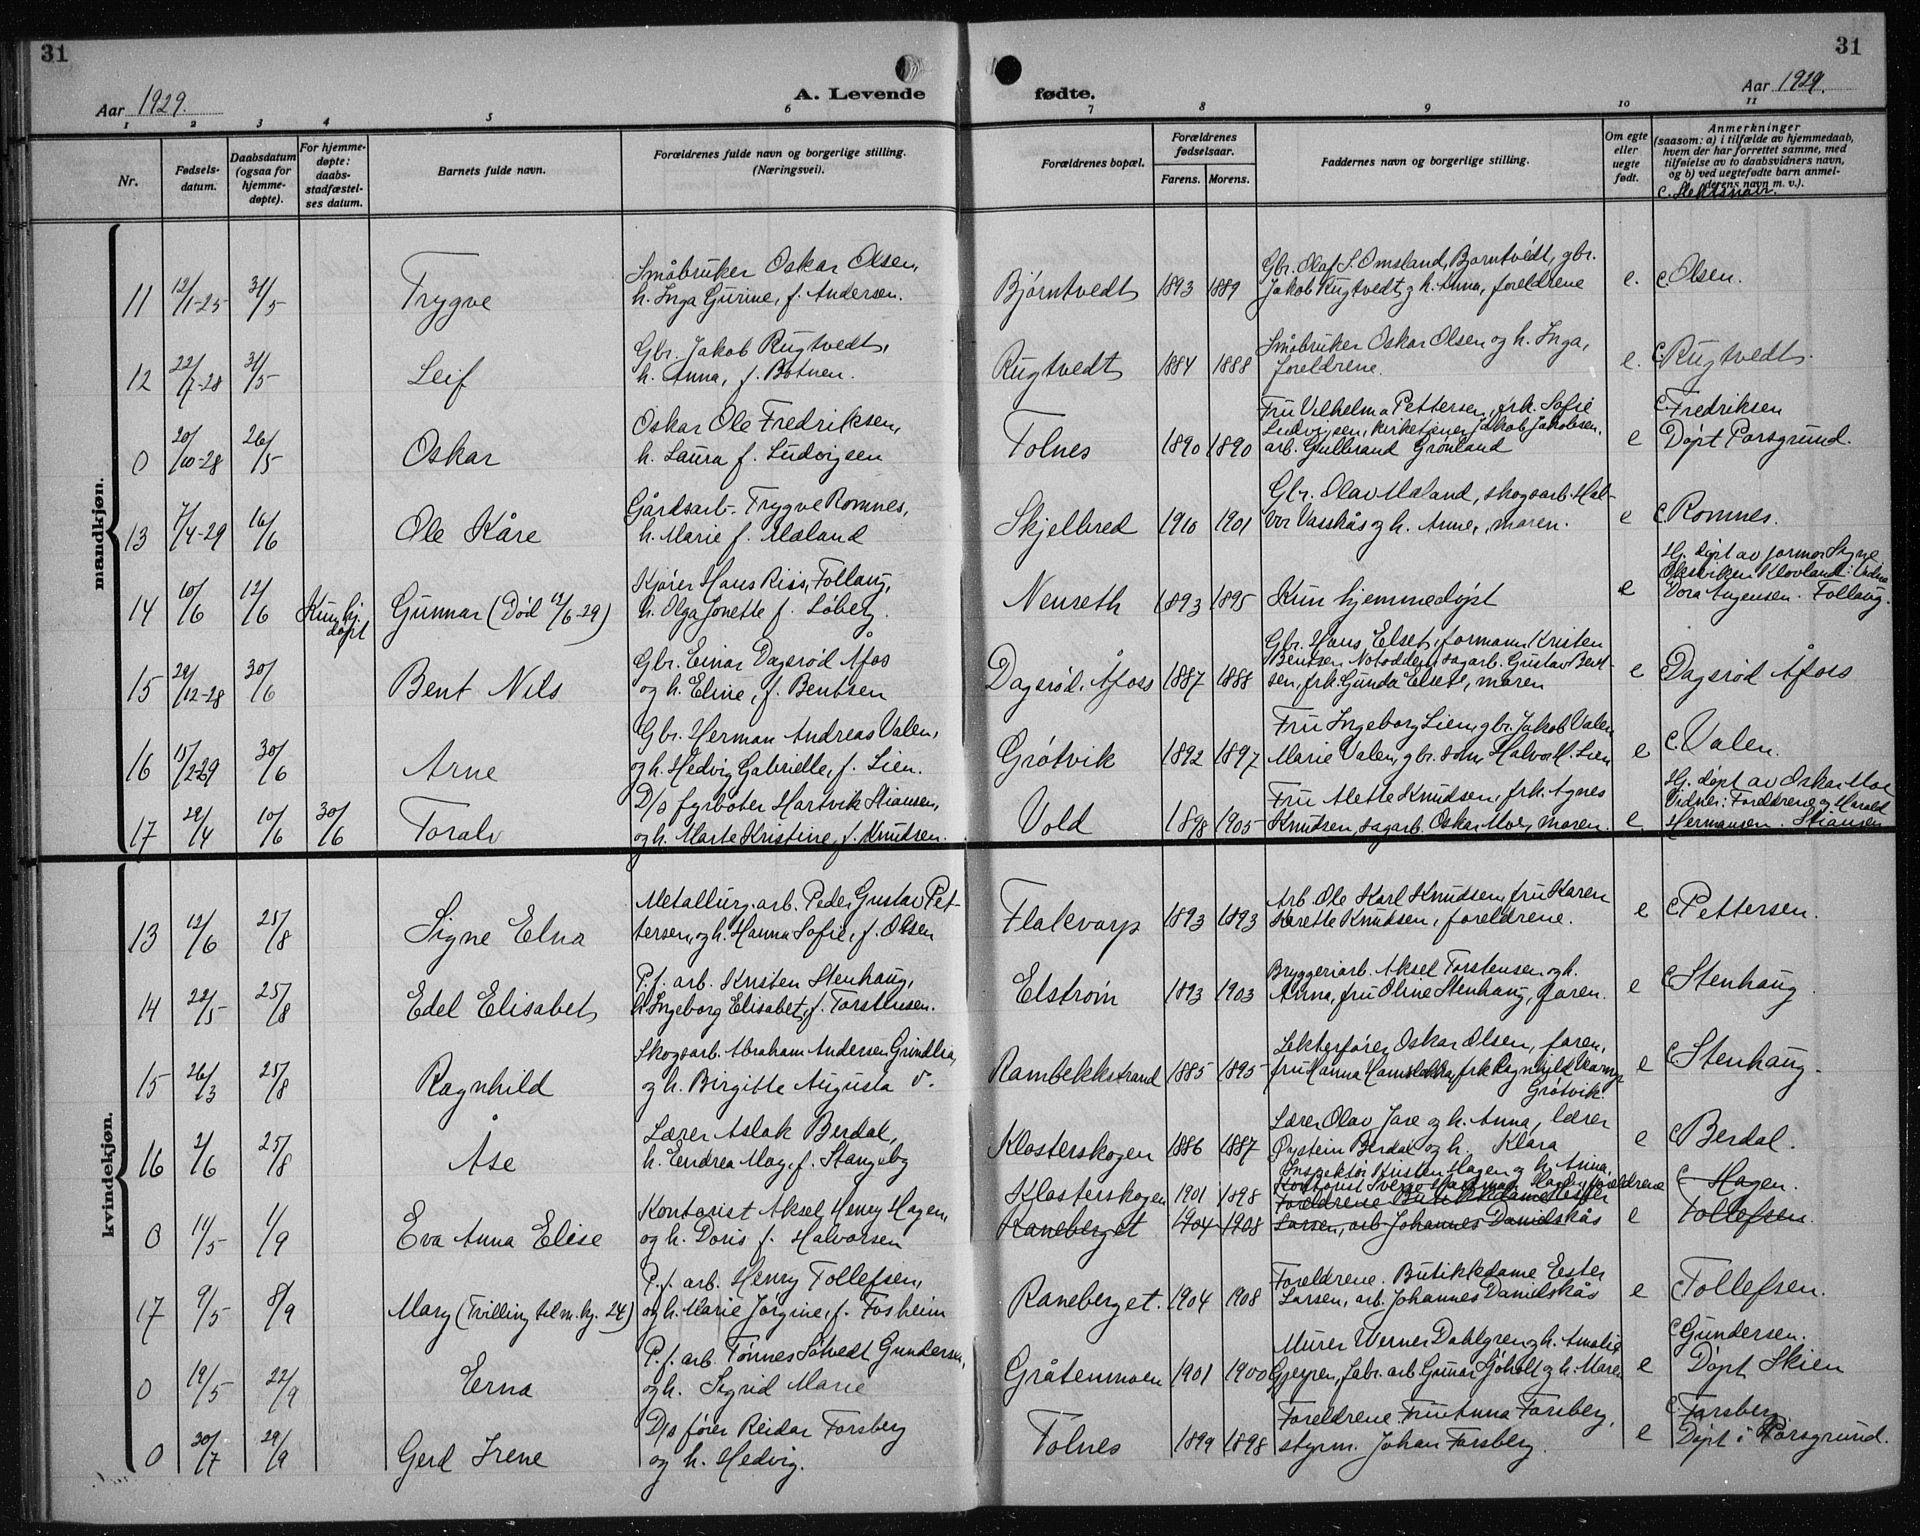 31
31
Aar 1929.
A. Levende fødte.
Aar 1929.
1 2 3 4 5 6 7 8 9 10 11
Nr.
Fødsels-
datum.
Daabsdatum
(ogsaa for
hjemme-
døpte).
For hjemme-
døpte:
daabs-
stadfæstel-
ses datum.
Barnets fulde navn.
Forældrenes fulde navn og borgerlige stilling.
(Næringsvei).
Forældrenes bopæl.
Forældrenes
fødselsaar.
Farens. Morens.
Faddernes navn og borgerlige stilling.
Om egte
eller
uegte
født.
Anmerkninger
(saasom: a) i tilfælde av hjemmedaab,
hvem der har forrettet samme, med
tilføielse av to daabsvidners navn,
og b) ved uegtefødte barn anmel-
derens navn m. v.).
c. Slektsnavn.
mandkjøn.
11 12/1-25 31/5 Trygve
Småbruker Oskar Olsen,
h. Inga Gurine, f. Andersen.
Bjørntvedt 1893 1889
Gbr. Olaf S. Omsland, Bjørntvedt, gbr.
Jakob Rugtvedt og h. Anna, foreldrene
e. c. Olsen.
12 22/7-28 31/5 Leif
Gbr. Jakob Rugtvedt,
h. Anna, f. Botnen.
Rugtvedt 1884 1888
Småbruker Oskar Olsen og h. Inga,
foreldrene.
e. c. Rugtvedt.
0 20/10-28 26/5 Oskar
Oskar Ole Fredriksen,
h. Laura f. Ludvigsen
Tolnes 1890 1890
Fru Vilhelma Pettersen, frk. Sofie
Ludvigsen, kirketjener Jakob Jakobsen,
arb. Gulbrand Grønland
e c. Fredriksen
Døpt Porsgrund.
13 7/4-29 16/6 Ole Kåre
Gårdsarb. Trygve Romnes,
h. Marie f. Mæland
Skjelbred 1910 1901
Gbr. Olav Mæland, skogsarb. Hal-
vor Vasskås og h. Anne, moren.
e c. Romnes.
14 10/6 12/6 Kun hj.
døpt
Gunnar (Død 12/6-29)
Kjører Hans Riis, Follaug,
h. Olga Jonette f. Løberg.
Nenseth 1893 1895
Kun hjemmedøpt
e Hj. døpt av jormor Signe
Klovland. Vidne
Follaug.
15 29/12-28 30/6 Bent Nils
Gbr. Einar Dagsrød Åfos
og h. Eline, f. Bentsen
Dagsrød, Åfoss 1887 1888
Gbr. Hans Elset, formann Kristen
Bentsen Notodden, sagarb. Gustav Bent-
sen, frk. Gunda Elset, moren
e c Dagsrød Åfoss
16 15/2-29 30/6 Arne
Gbr. Herman Andreas Valen,
og h. Hedvig Gabrielle, f. Lien.
Grøtvik 1892 1897
Fru Ingeborg Lien, gbr. Jakob Valen
Marie Valen, gbr. sønn Halvor H. Lien
e c. Valen.
17 29/4 10/6 30/6 Toralv
D/s fyrbøter Hartvik Stiansen,
og h. Marte Kristine, f. Knudsen.
Vold 1898 1905
Fru Alette Knudsen, frk. Agnes
Knudsen, sagarb. Oskar Moe, moren.
e. Hj. døpt av Oskar Moe
Vidner: Foreldrene og Harald
Hermansen. Stiansen
kvindekjøn.
13 12/6 25/8 Signe Elna
Metallurg. arb. Peder Gustav Pet-
tersen, og h. Hanna Sofie, f. Olsen
Flakvarp 1893 1893
Arb Ole Karl Knudsen, fru Karen
Serette Knudsen, foreldrene.
e c Pettersen.
14 22/5 25/8 Edel Elisabet
P.f. arb. Kristen Stenhaug,
h. Ingeborg Elisabet, f. Torstensen.
Elstrøm 1893 1903
Bryggeriarb. Aksel Torstensen og h.
Anna, fru Oline Stenhaug, faren.
e c Stenhaug
15 26/3 25/8 Ragnhild
Skogsarb. Abraham Andersen Grindlia,
og h. Birgitte Augusta
Rambekkstrand 1885 1895
Lekterfører Oskar Olsen, faren,
fru Hanna frk Ragnhild
Grøtvik.
e c. Stenhaug.
16 2/6 25/8 Åse
Lærer Aslak Berdal,
h. Endrea May, f. Stangeby
Klosterskogen 1886 1887
Lærer Olav Jore og h. Anna, lærer
Øystein Berdal og h. Klara
e c Berdal.
0 14/5 1/9 Eva Anna Elise
Kontorist Aksel Henry Hagen,
og h. Doris f. Halvorsen
Klosterskogen 1901 1898
Raneberget 1904 1908
Inspektør Kristen Hagen og h. Anna,
Kontorist Hagen, foreldrene
Foreldrene Butikkdame Ester
Larsen, arb. Johannes Danielskås
e c Hagen.
Tollefsen.
17 9/5 8/9 Mary (Tvilling til m. kj. 24)
P.f. arb. Henry Tollefsen,
og h. Marie Jørgine, f. Fosheim
Raneberget. 1904 1908
Foreldrene. Butikkdame Ester
Larsen, arb. Johannes Danielskås
e c Tollefsen.
0 19/5 22/9 Erna
P.f. arb. Tønnes Sølvedt Gundersen,
og h. Sigrid Marie
Gråtenmoen 1901 1900
Murer Werner Dahlgren og h. Amalie
fabr. arb Gunar Sjøholt og h. Maren
e c Gundersen.
Døpt Skien
0 30/7 29/9 Gerd Irene
D/s fører Reidar Forsberg
og h. Hedvig.
Tolnes 1899 1898
Foreldrene. Fru Anna Forsberg,
styrm. Johan Forsberg.
e c Forsberg
Døpt i Porsgrund.